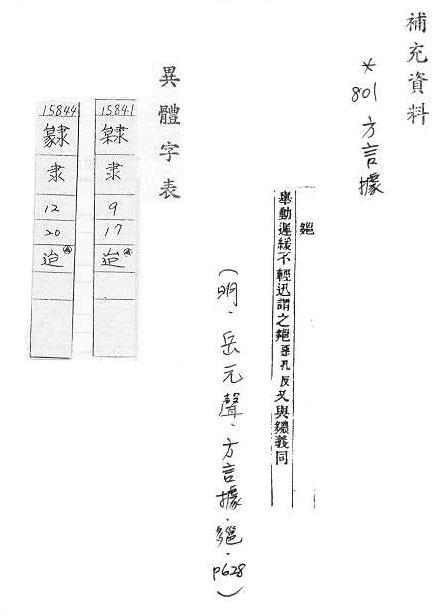 補充資料
*801 方言據
舉動遲緩不輕迅謂之
反又與
義同
(明.岳元聲.方言據.
.p628)
異體字表
15841
隶
9
17
迨
15844
隶
12
20
迨